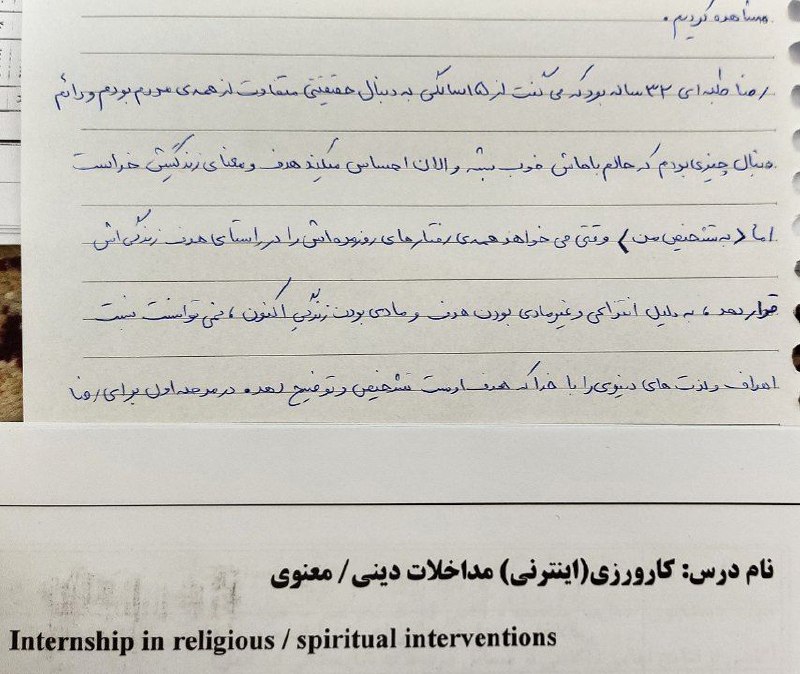 مشاهده کردیم.
رضا طلبه‌ای ۳۲ ساله بود که می‌گفت از ۱۵ سالگی به دنبال حقیقتی متفاوت از همه‌ی مردم بودم و دائم
دنبال چیزی بودم که حالم باهاش خوب بشه و الان احساس میکند هدف و معنای زندگیش خداست
اما (به تشخیص من) وقتی می خواهد همه‌ی رفتارهای روزمره‌اش را در راستای هدف زندگی‌اش
قرار دهد، به دلیل انتزاعی و غیرمادی بودن هدف و مادی بودن زندگی اکنون، نمی توانست نسبت
اهداف و لذت های دنیوی را با خدا که هدف اوست تشخیص و توضیح دهد. در مرحله اول برای رضا
نام درس: کارورزی(اینترنی) مداخلات دینی/ معنوی
Internship in religious / spiritual interventions